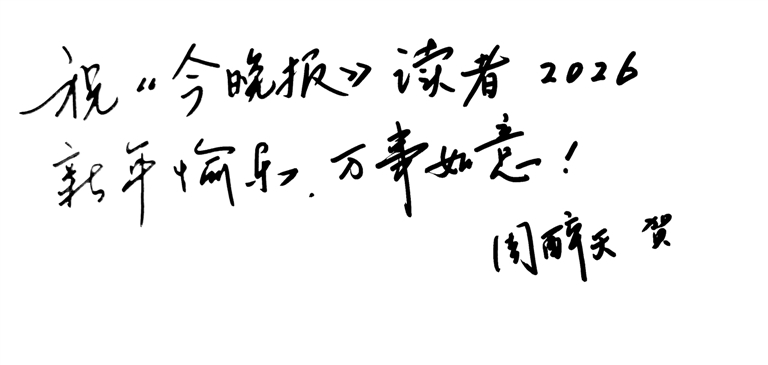 祝《今晚报》读者 2026
新年愉乐.万事如意!
周醉天 贺